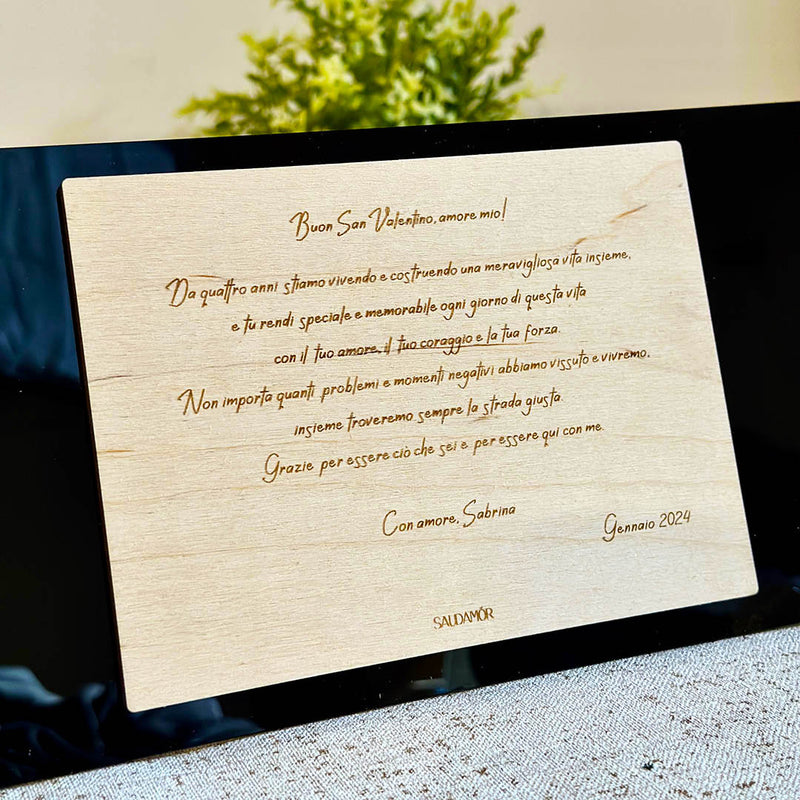 Buon San Valentino, amore mio!
Da quattro anni stiamo vivendo e costruendo una meravigliosa vita insieme,
e tu rendi speciale e memorabile ogni giorno di questa vita
con il tuo amore, il tuo coraggio e la tua forza.
Non importa quanti problemi e momenti negativi abbiamo vissuto e vivremo,
insieme troveremo sempre la strada giusta.
Grazie per essere ciò che sei e per essere qui con me.
Con amore, Sabrina
Gennaio 2024
SAUDAMÓR